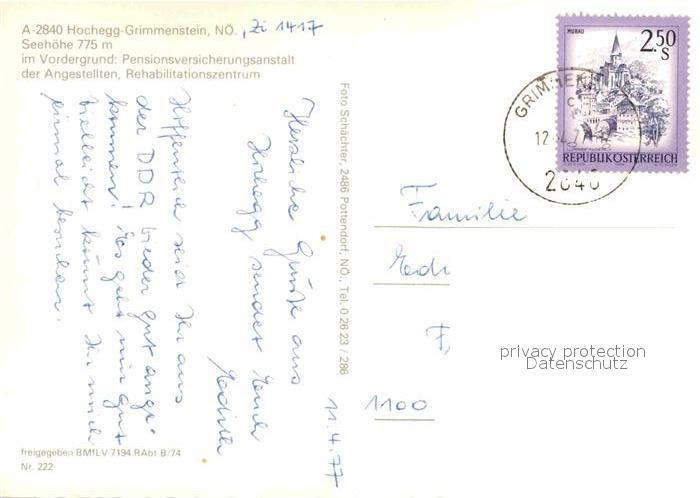 A-2840 Hochegg-Grimmenstein, NÖ., Zi 1417
Seehöhe 775 m
im Vordergrund: Pensionsversicherungsanstalt
der Angestellten, Rehabilitationszentrum
Herzliche Grüße aus
Hochegg sendet Euch
Edith
Hoffentlich seid Ihr aus
der DDR wieder gut ange-
kommen! Es geht mir gut
vielleicht könnt Ihr mich
einmal besuchen.
11.4.77
freigegeben BMfLV 7194 RAbt B/74
Nr. 222
Foto Schächter, 2486 Pottendorf, NÖ., Tel. 0 26 23 / 286
MURAU
2.50
S
REPUBLIK ÖSTERREICH
2840
Familie
1100
privacy protection
Datenschutz